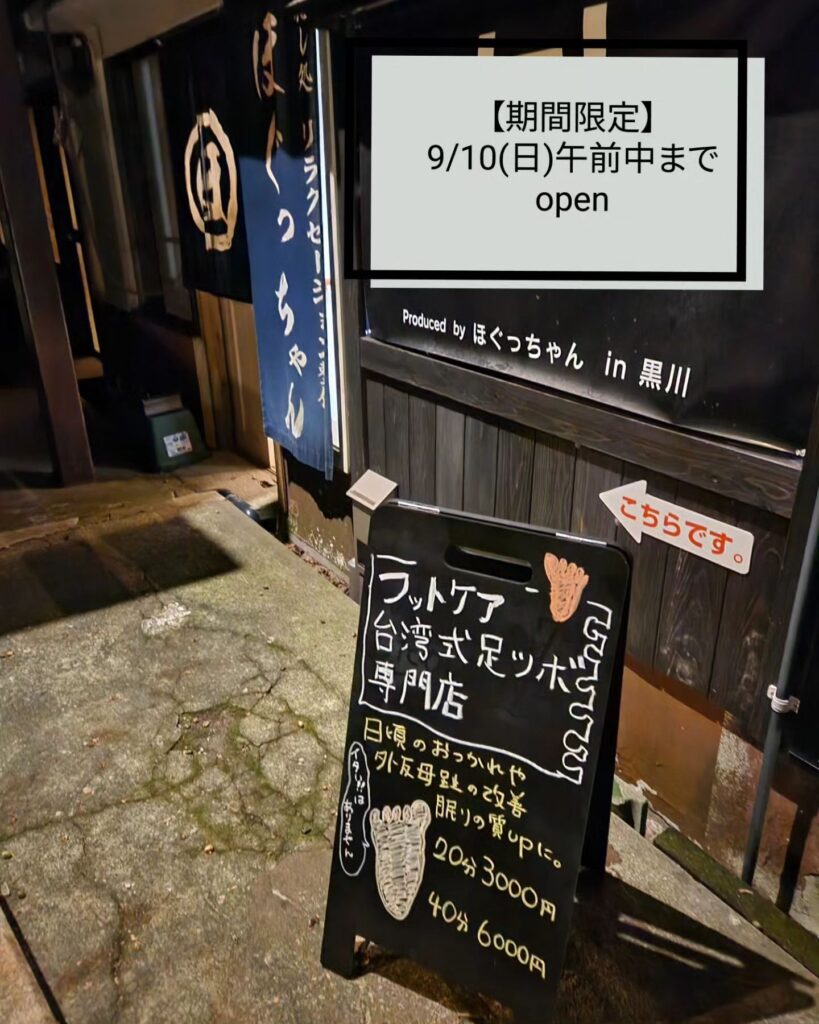 【期間限定】
9/10(日)午前中まで
open
Produced by ほぐっちゃん in 黒川
ほ
ほぐっちゃん
し処 リラクゼーシ
こちらです。
フットケア
台湾式足ツボ
専門店
日頃のおつかれや
外反母趾の改善
眠りの質upに。
20分3000円
40分6000円
イタ
はありますよ